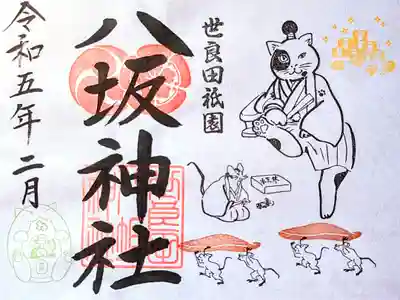 世良田祇園
八坂神社
令和五年二月